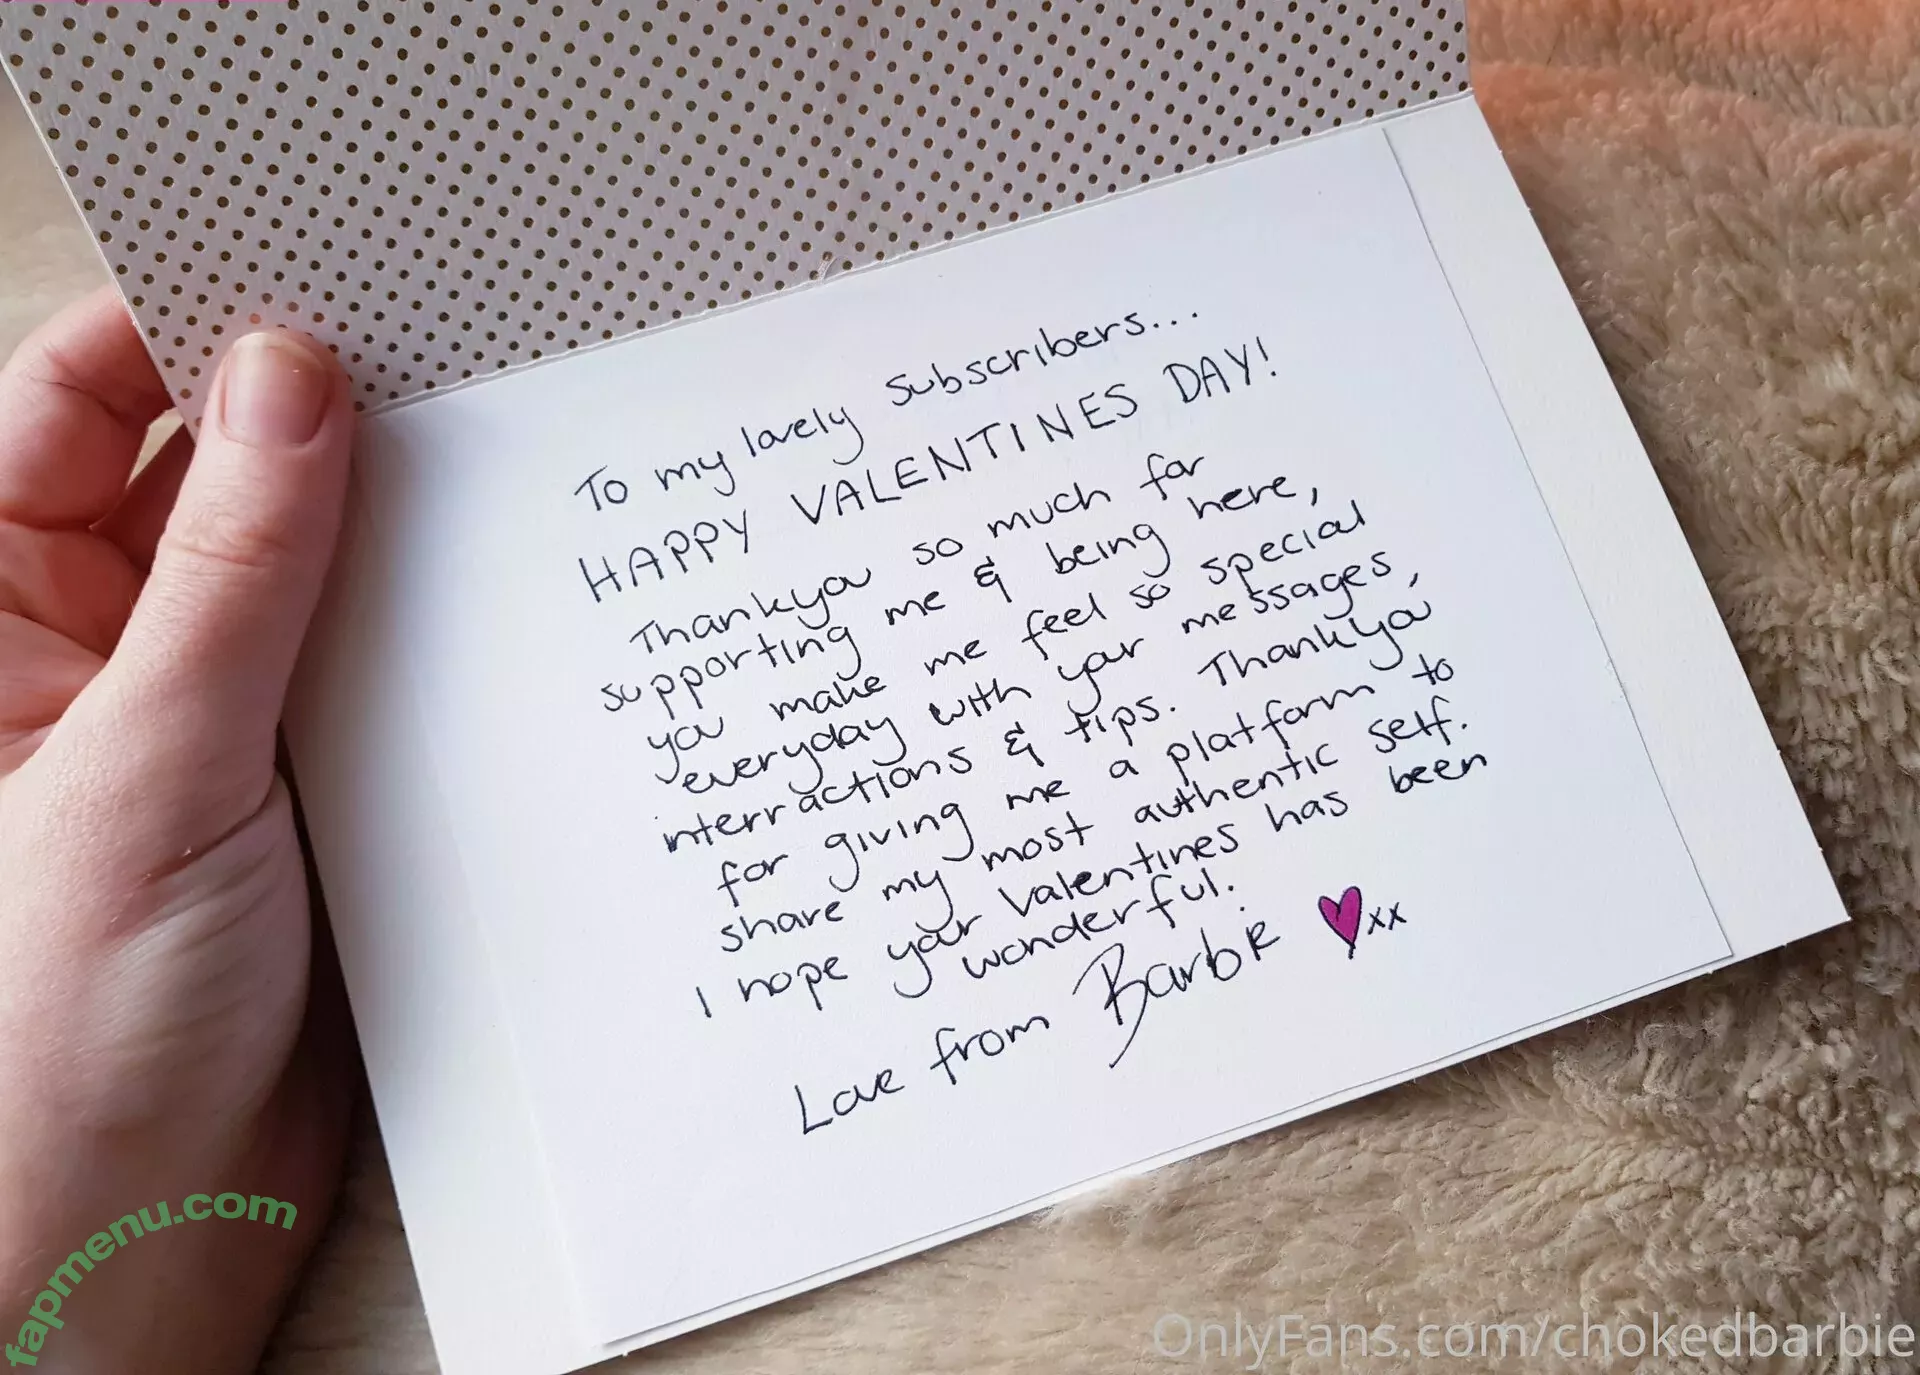 To my lovely subscribers...
HAPPY VALENTINES DAY!
Thankyou so much for
supporting me & being here,
you make me feel so special
everyday with your messages,
interractions & tips. Thankyou
for giving me a platform to
share my most authentic self.
I hope your valentines has been
wonderful.
Love from Barbie xx
fapmenu.com
OnlyFans.com/chokedbarbie